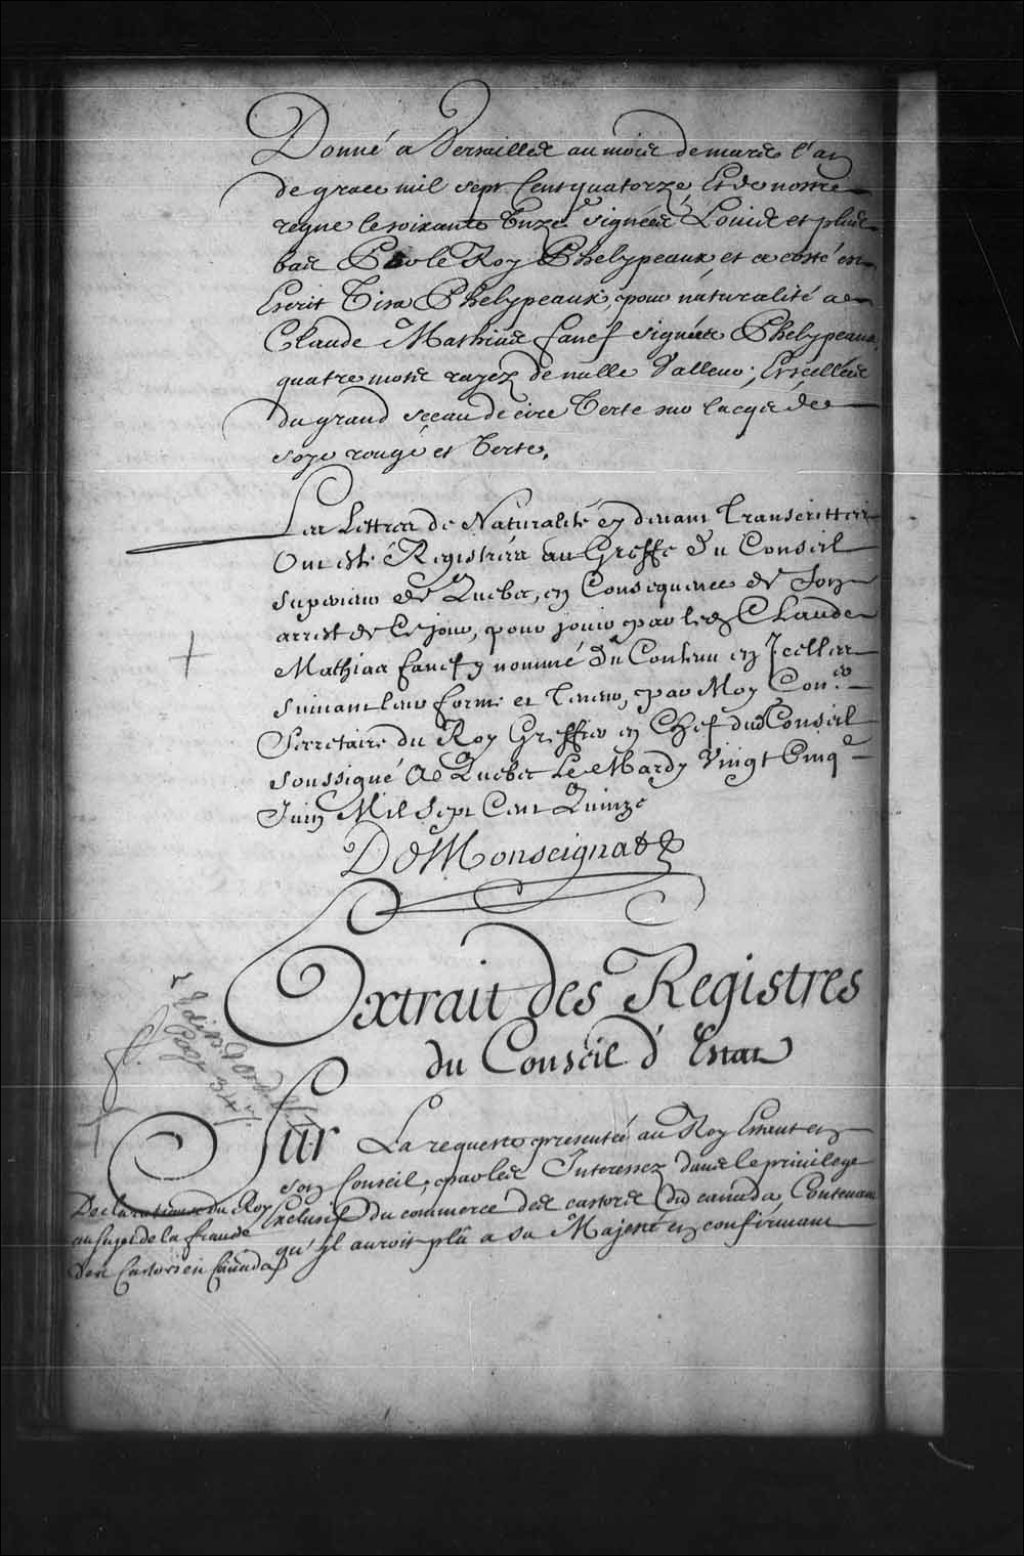 Donné a Versailles au mois de mars l'an
de grace mil sept Cent quatorze, Et de nostre
regne le soixante Unze signées Louis et plus
bas Par le Roy Phelypeaux et a costé est
Escrit Visa Phelypeaux, pour naturalité a
Claude Mathias fanef signées Phelypeaux,
quatre mots rayez de nulle Valleur; Et scellées
du grand sceau de cire Verte sur lacqs de
soye rouge et Verte.
Les Lettres de Naturalité cy devant Transcrittes
Ont esté Registrées au Greffe du Conseil
Superieur de Quebec, en Consequence de Son
arrest de Ce jour, pour jouir par led. Claude
Mathias fanef y nommé du Contenu en Icelles
Suivant leur forme et teneur, par Moy Con.er
Secretaire du Roy Greffier en Chef dud Conseil
Soussigné A Quebec Le Mardy Vingt Cinq.e
Juin Mil Sept Cent Quinze
DeMonseignat
Extrait des Registres
du Conseil d'Estat
Edits & Ord.
Page 347.
Sur La requeste presentée au Roy Estant en
son Conseil, par les Interessez dans le privilege
Exclusif du commerce des castors du canada, Contenant
qu'Il auroit plû a Sa Majesté en confirmant
Declaration du Roy
au sujet de la fraude
des Castors en Canada